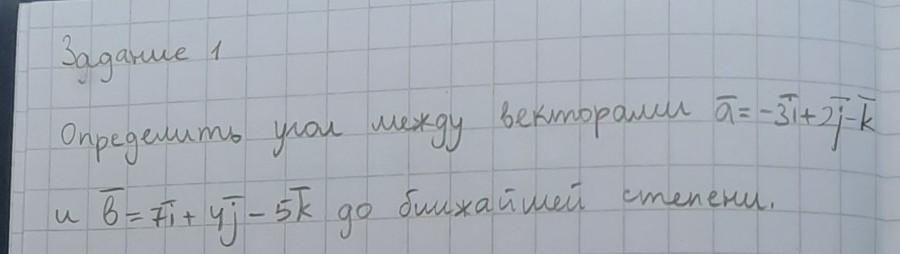 Задание 1
Определить угол между векторами a̅ = -3i̅ + 2j̅ - k̅
и b̅ = 7i̅ + 4j̅ - 5k̅ до ближайшей степени.